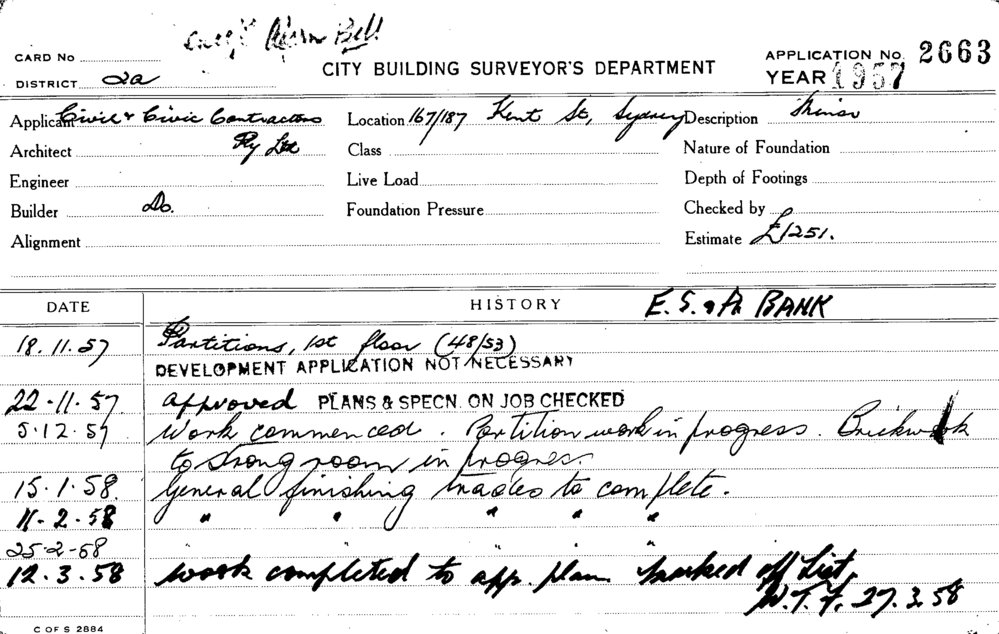 Bell
CARD No
DISTRICT 2a
CITY BUILDING SURVEYOR'S DEPARTMENT
APPLICATION No. 2663
YEAR 1957
Applicant Civil & Civic Contractors Location 167/187 Kent St, Sydney Description Minor
Architect Pty Ltd Class Nature of Foundation
Engineer Live Load Depth of Footings
Builder Do. Foundation Pressure Checked by
Alignment Estimate £1251.
DATE HISTORY E. S. & A BANK
18.11.57 Partitions, 1st floor (48/53)
DEVELOPMENT APPLICATION NOT NECESSARY
22-11-57 approved PLANS & SPECN. ON JOB CHECKED
5.12.57 Work commenced. Partition work in progress. Brickwork
to strong room in progress.
15.1.58. General finishing trades to complete.
11-2-58 " " " " "
25-2-58 " " " "
12.3.58 work completed to app. plan marked off List.
W.T.F. 27.3.58
C OF S 2884